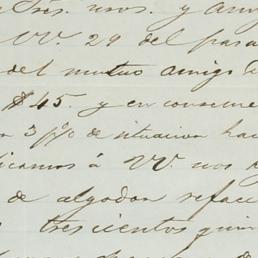 Tres. nros. y am
VV. 29 del pasa
del mutuo amigo
$45. y en consecue
3 p%o de situacion ha
dicamos á VV. nos
de algodon reface
trescientos quin